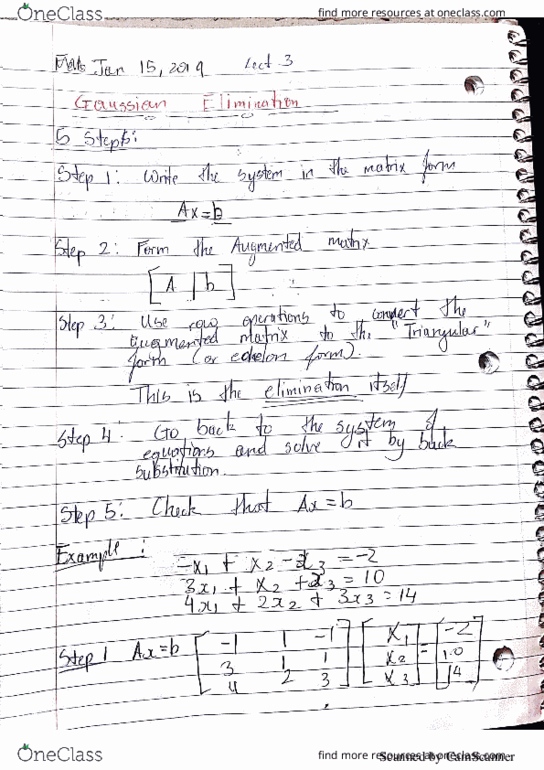 OneClass
find more resources at oneclass.com
Jan 15, 2019 Lect 3
Gaussian Elimination
5 Steps:
Step 1: Write the system in the matrix form
Ax=b
Step 2: Form the Augmented matrix
[A | b]
Step 3: Use row operations to convert the
augmented matrix to the "Triangular"
form (or echelon form).
This is the elimination itself
Step 4: Go back to the system of
equations and solve it by back
substitution.
Step 5: Check that Ax=b
Example:
-x1 + x2 - x3 = -2
3x1 + x2 + x3 = 10
4x1 + 2x2 + 3x3 = 14
Step 1 Ax=b [-1 1 -1] [x1] = [-2]
3 1 1 x2 10
4 2 3 x3 14
OneClass
find more resources at oneclass.com
Scanned by CamScanner